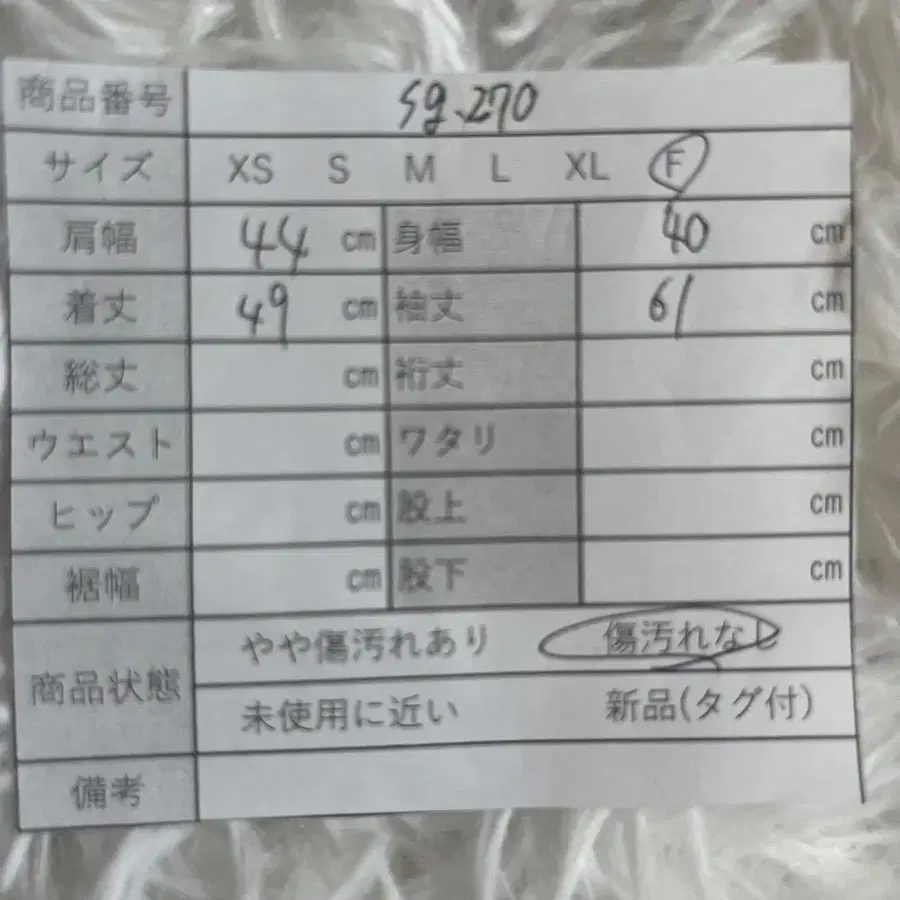 商品番号 sg.270
サイズ XS S M L XL F
肩幅 44 cm 身幅 40 cm
着丈 49 cm 袖丈 61 cm
総丈 cm 裄丈 cm
ウエスト cm ワタリ cm
ヒップ cm 股上 cm
裾幅 cm 股下 cm
商品状態 やや傷汚れあり 傷汚れなし
未使用に近い 新品(タグ付)
備考